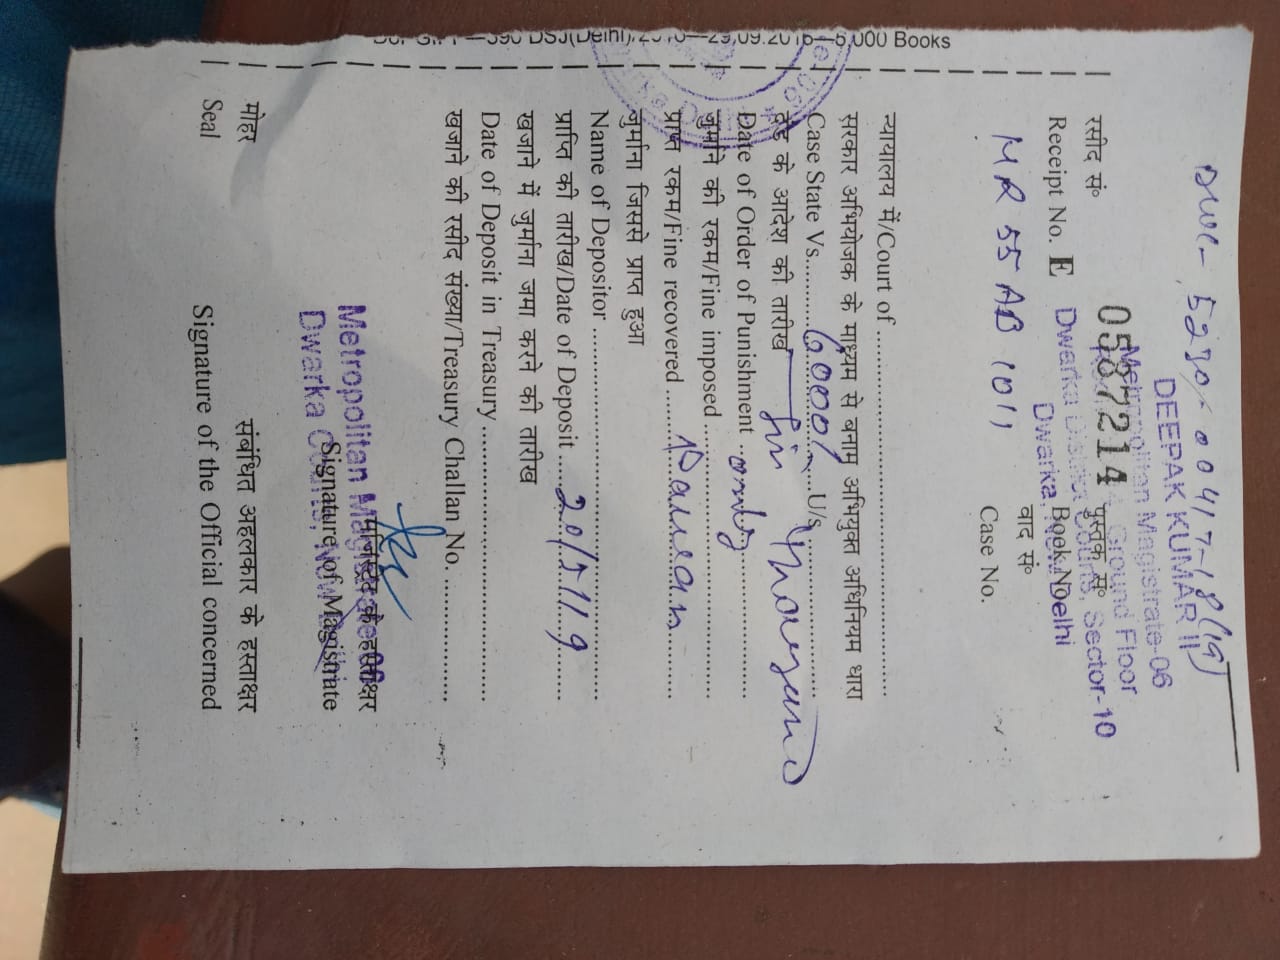 DWC- 5230-0417-18(19)
DEEPAK KUMAR II
Metropolitan Magistrate-06
Ground Floor
Dwarka District Courts, Sector-10
Dwarka, New Delhi
रसीद सं० 0587214 पुस्तक सं०
Receipt No. E Book No
MR 55 AB 1011 वाद सं०
Case No.
न्यायालय में/Court of
सरकार अभियोजक के माध्यम से बनाम अभियुक्त अधिनियम धारा
Case State Vs. 6000/- U/s
दंड के आदेश की तारीख
Date of Order of Punishment only
जुर्माने की रकम/Fine imposed
प्राप्त रकम/Fine recovered
जुर्माना जिससे प्राप्त हुआ
Name of Depositor
प्राप्ति की तारीख/Date of Deposit 20/5/19
खजाने में जुर्माना जमा करने की तारीख
Date of Deposit in Treasury
खजाने की रसीद संख्या/Treasury Challan No.
मजिस्ट्रेट के हस्ताक्षर
Signature of Magistrate
Metropolitan Magistrate-06
Dwarka Courts, New Delhi
मोहर संबंधित अहलकार के हस्ताक्षर
Seal Signature of the Official concerned
DSJ(Delhi)/2015—29.09.2016—5,000 Books